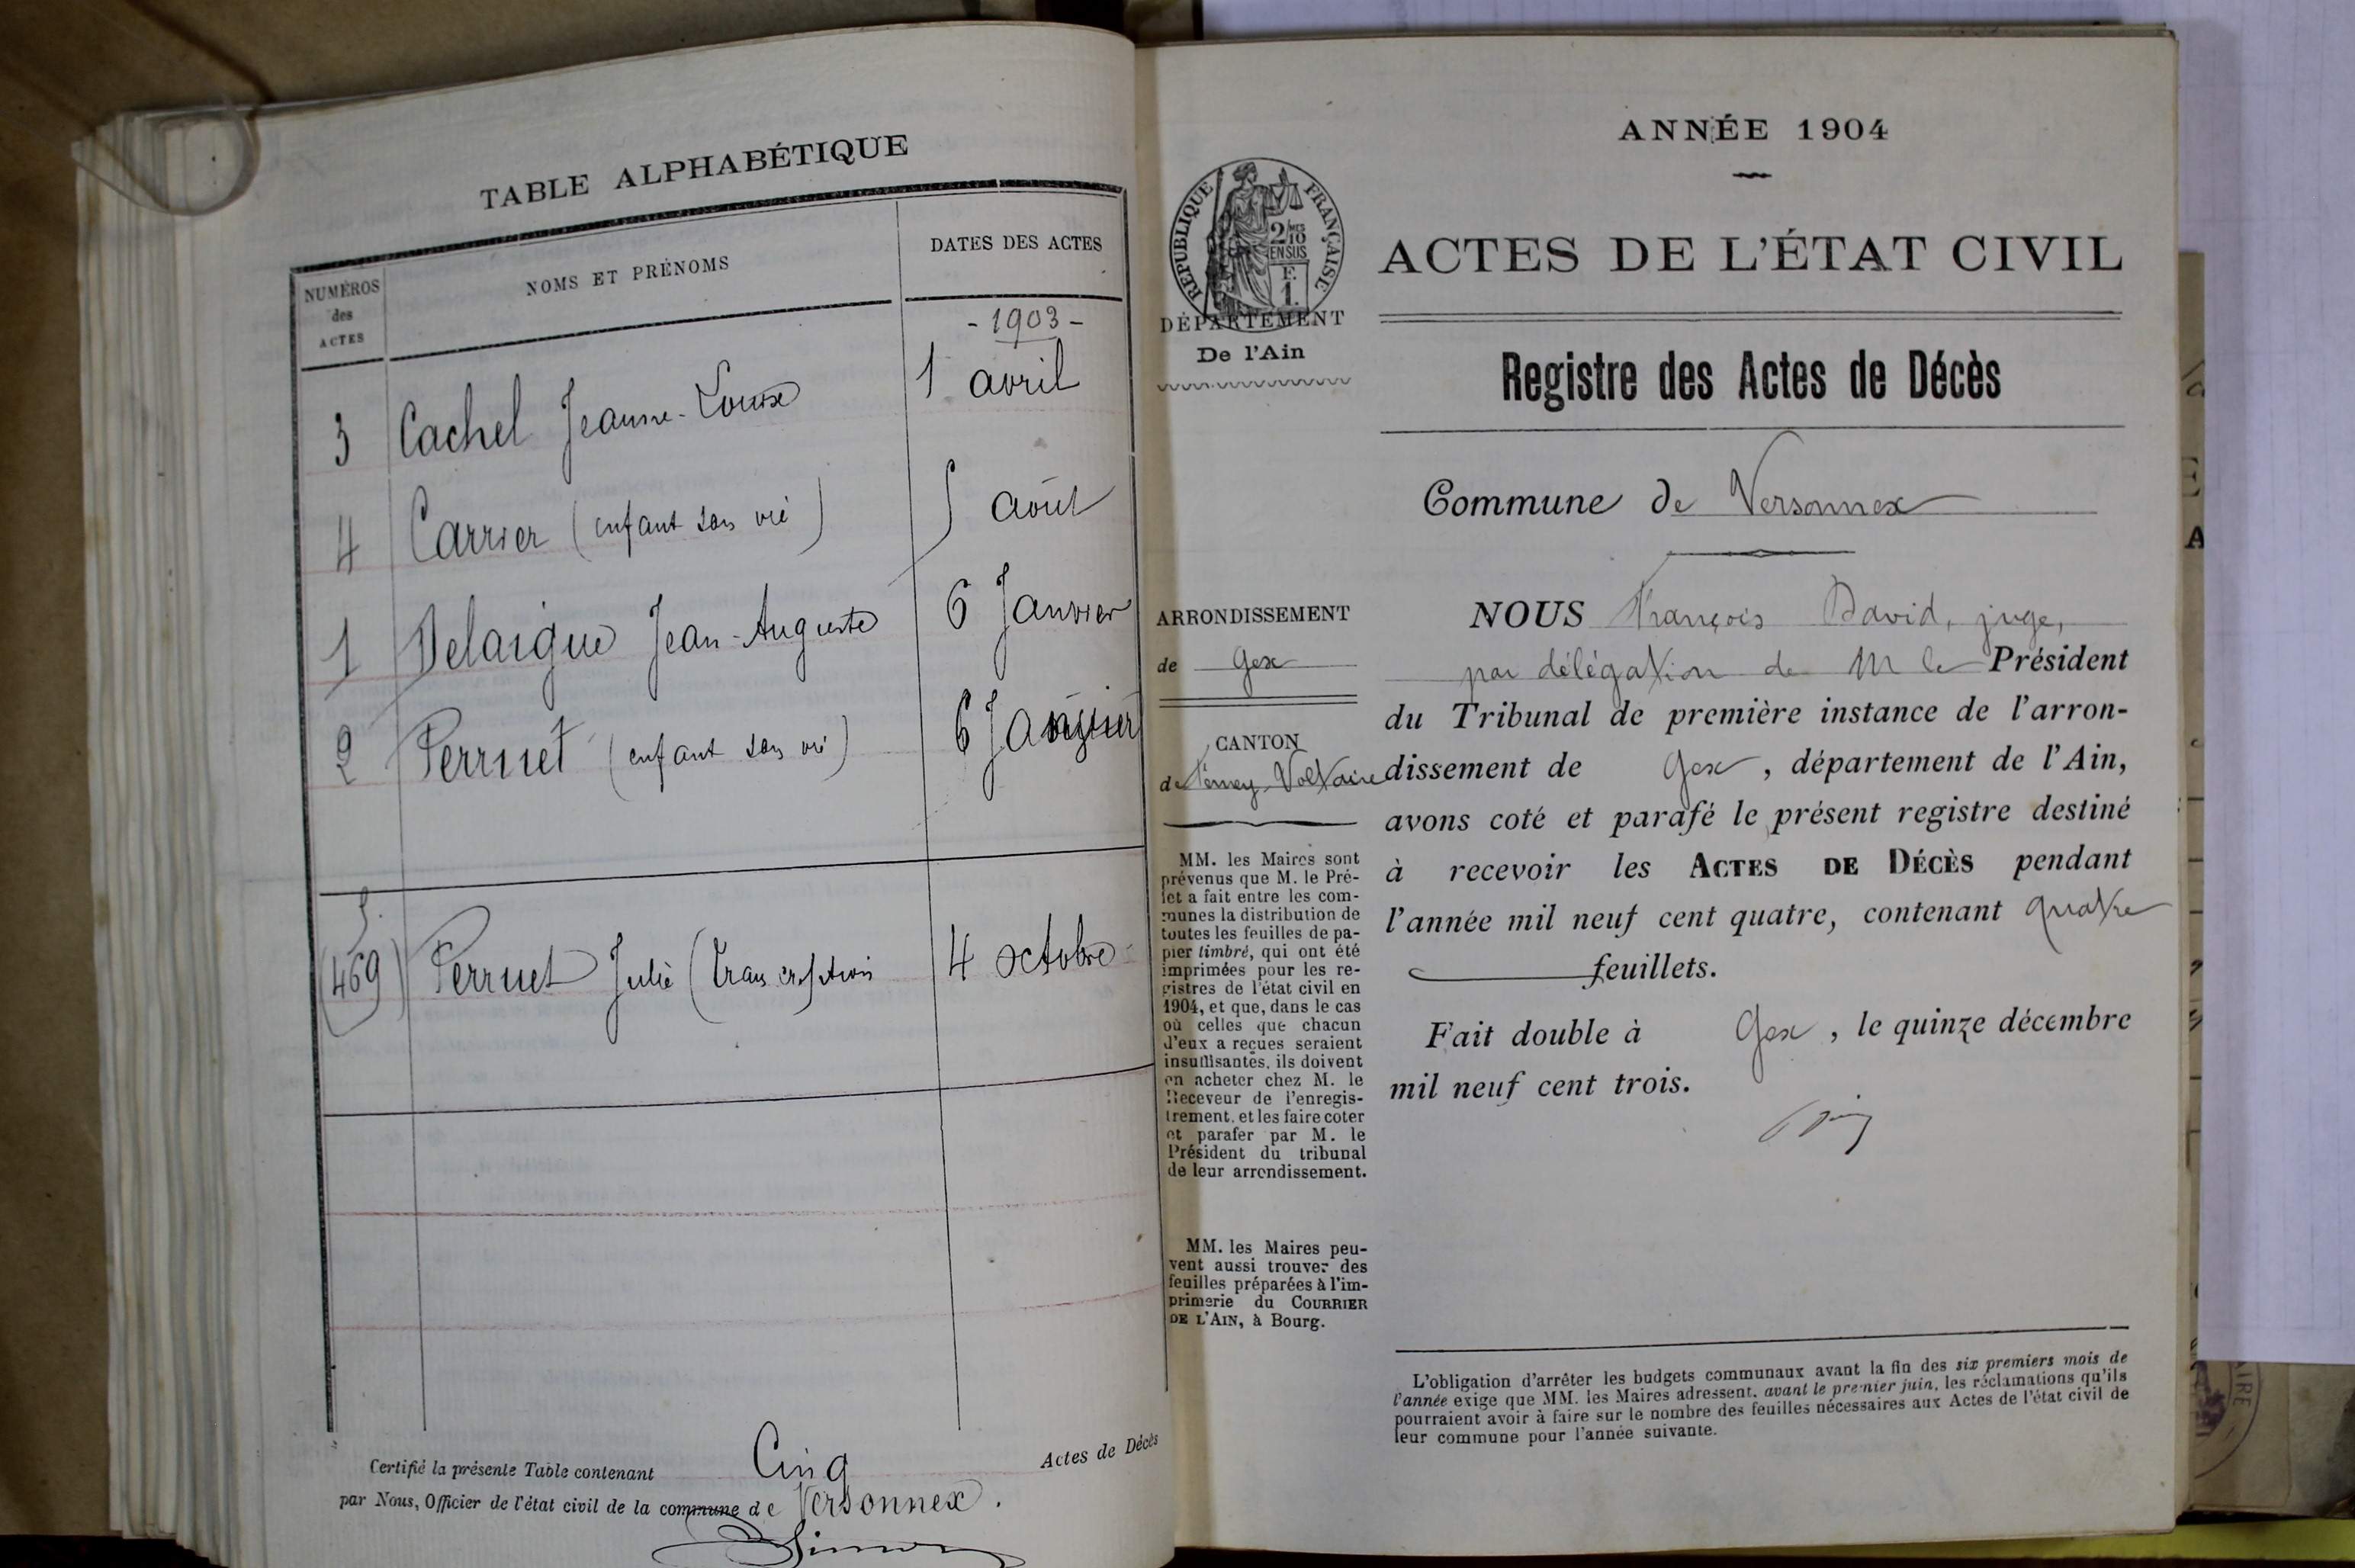 TABLE ALPHABÉTIQUE
NUMÉROS
des
ACTES
NOMS ET PRÉNOMS
DATES DES ACTES
- 1903 -
3 Cachel Jeanne-Louise 1 avril
4 Carrier (enfant sans vie) 5 août
1 Delaigue Jean-Auguste 6 Janvier
2 Perruet (enfant sans vie) 6 Janvier
5.
(469) Perruet Julie (transcription 4 octobre
Certifié la présente Table contenant Cinq Actes de Décès
par Nous, Officier de l'état civil de la commune de Versonnex.
RÉPUBLIQUE FRANÇAISE
2/10 MES
EN SUS
F.
1.
DÉPARTEMENT
De l'Ain
ARRONDISSEMENT
de Gex
CANTON
de Ferney-Voltaire
MM. les Maires sont
prévenus que M. le Pré-
fet a fait entre les com-
munes la distribution de
toutes les feuilles de pa-
pier timbré, qui ont été
imprimées pour les re-
gistres de l'état civil en
1904, et que, dans le cas
où celles que chacun
d'eux a reçues seraient
insuffisantes, ils doivent
en acheter chez M. le
Receveur de l'enregis-
trement, et les faire coter
et parafer par M. le
Président du tribunal
de leur arrondissement.
MM. les Maires peu-
vent aussi trouver des
feuilles préparées à l'im-
primerie du COURRIER
DE L'AIN, à Bourg.
ANNÉE 1904
ACTES DE L'ÉTAT CIVIL
Registre des Actes de Décès
Commune de Versonnex
NOUS François David, juge,
par délégation de M le Président
du Tribunal de première instance de l'arron-
dissement de Gex, département de l'Ain,
avons coté et parafé le présent registre destiné
à recevoir les ACTES DE DÉCÈS pendant
l'année mil neuf cent quatre, contenant quatre
feuillets.
Fait double à Gex, le quinze décembre
mil neuf cent trois.
L'obligation d'arrêter les budgets communaux avant la fin des six premiers mois de
l'année exige que MM. les Maires adressent, avant le premier juin, les réclamations qu'ils
pourraient avoir à faire sur le nombre des feuilles nécessaires aux Actes de l'état civil de
leur commune pour l'année suivante.